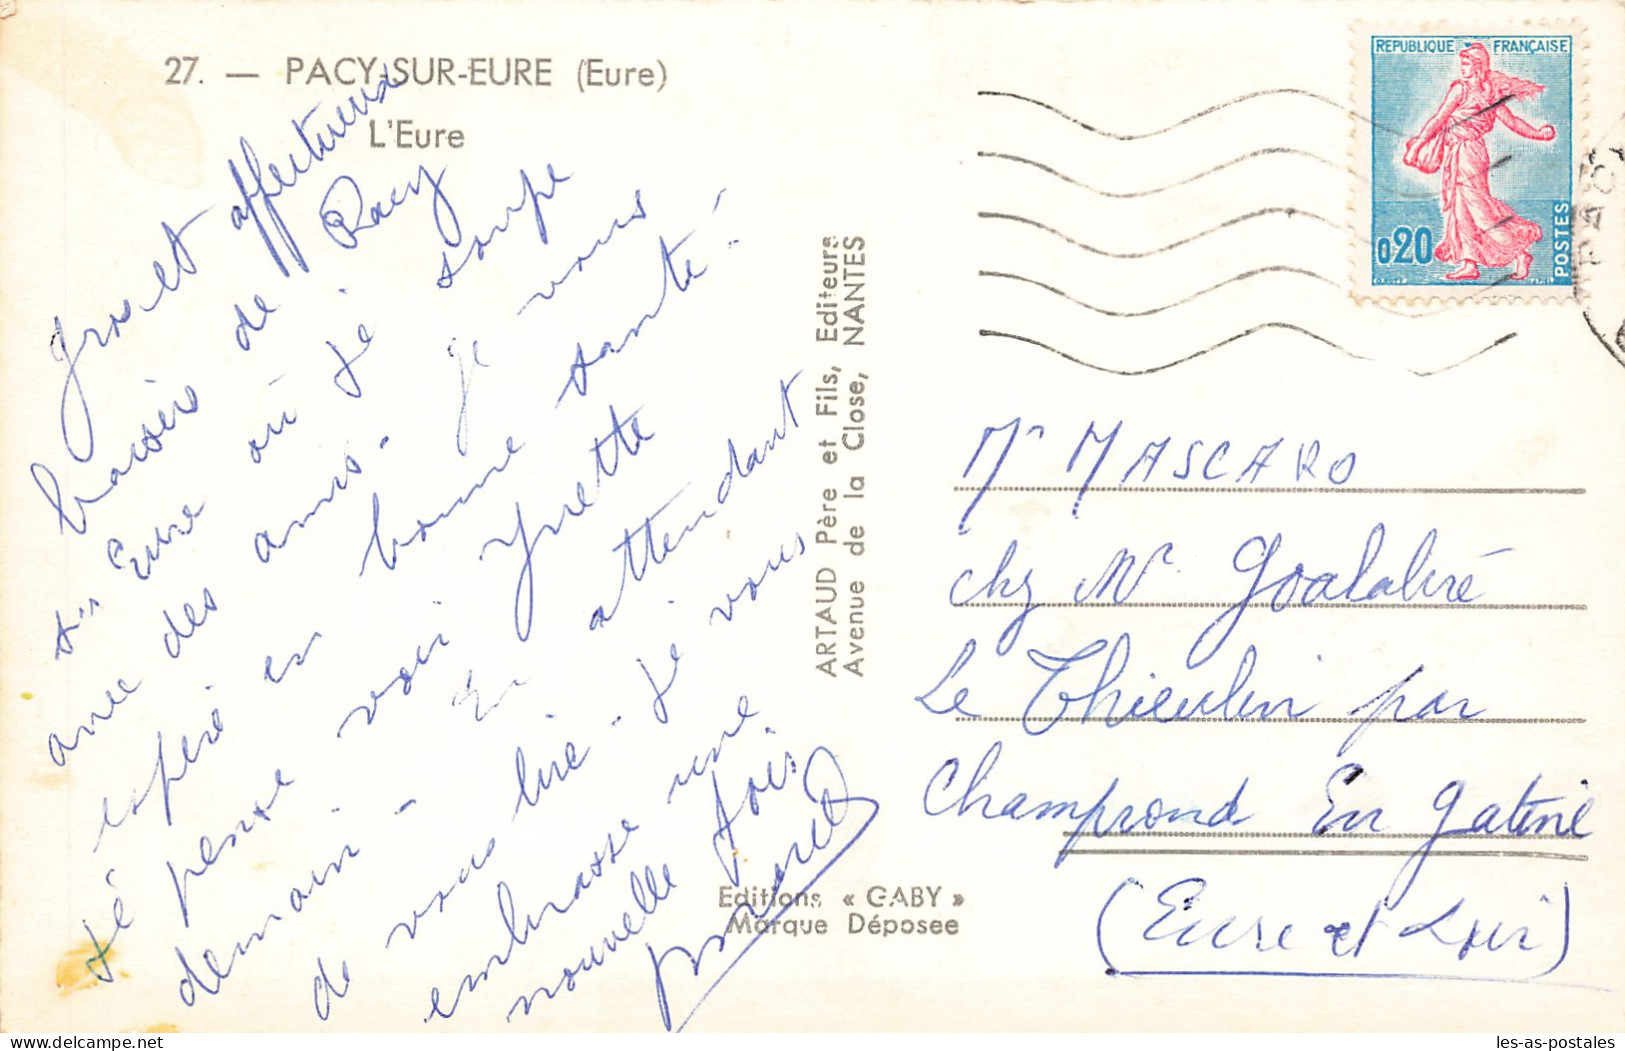 27. — PACY-SUR-EURE (Eure)
L'Eure
Gros et affectueux
baisers de Pacy
s/ Eure où je soupe
avec des amis - je vous
espère en bonne santé -
Je pense voir Yvette
demain - En attendant
de vous lire - Je vous
embrasse une
nouvelle fois
Marcel
ARTAUD Père et Fils, Editeurs
Avenue de la Close, NANTES
Editions « GABY »
Marque Déposée
REPUBLIQUE FRANÇAISE
0,20
POSTES
Mr MASCARO
chz Mr Goalabré
Le Thieulin par
Champrond En Gatine
(Eure et Loir)
les-as-postales.com